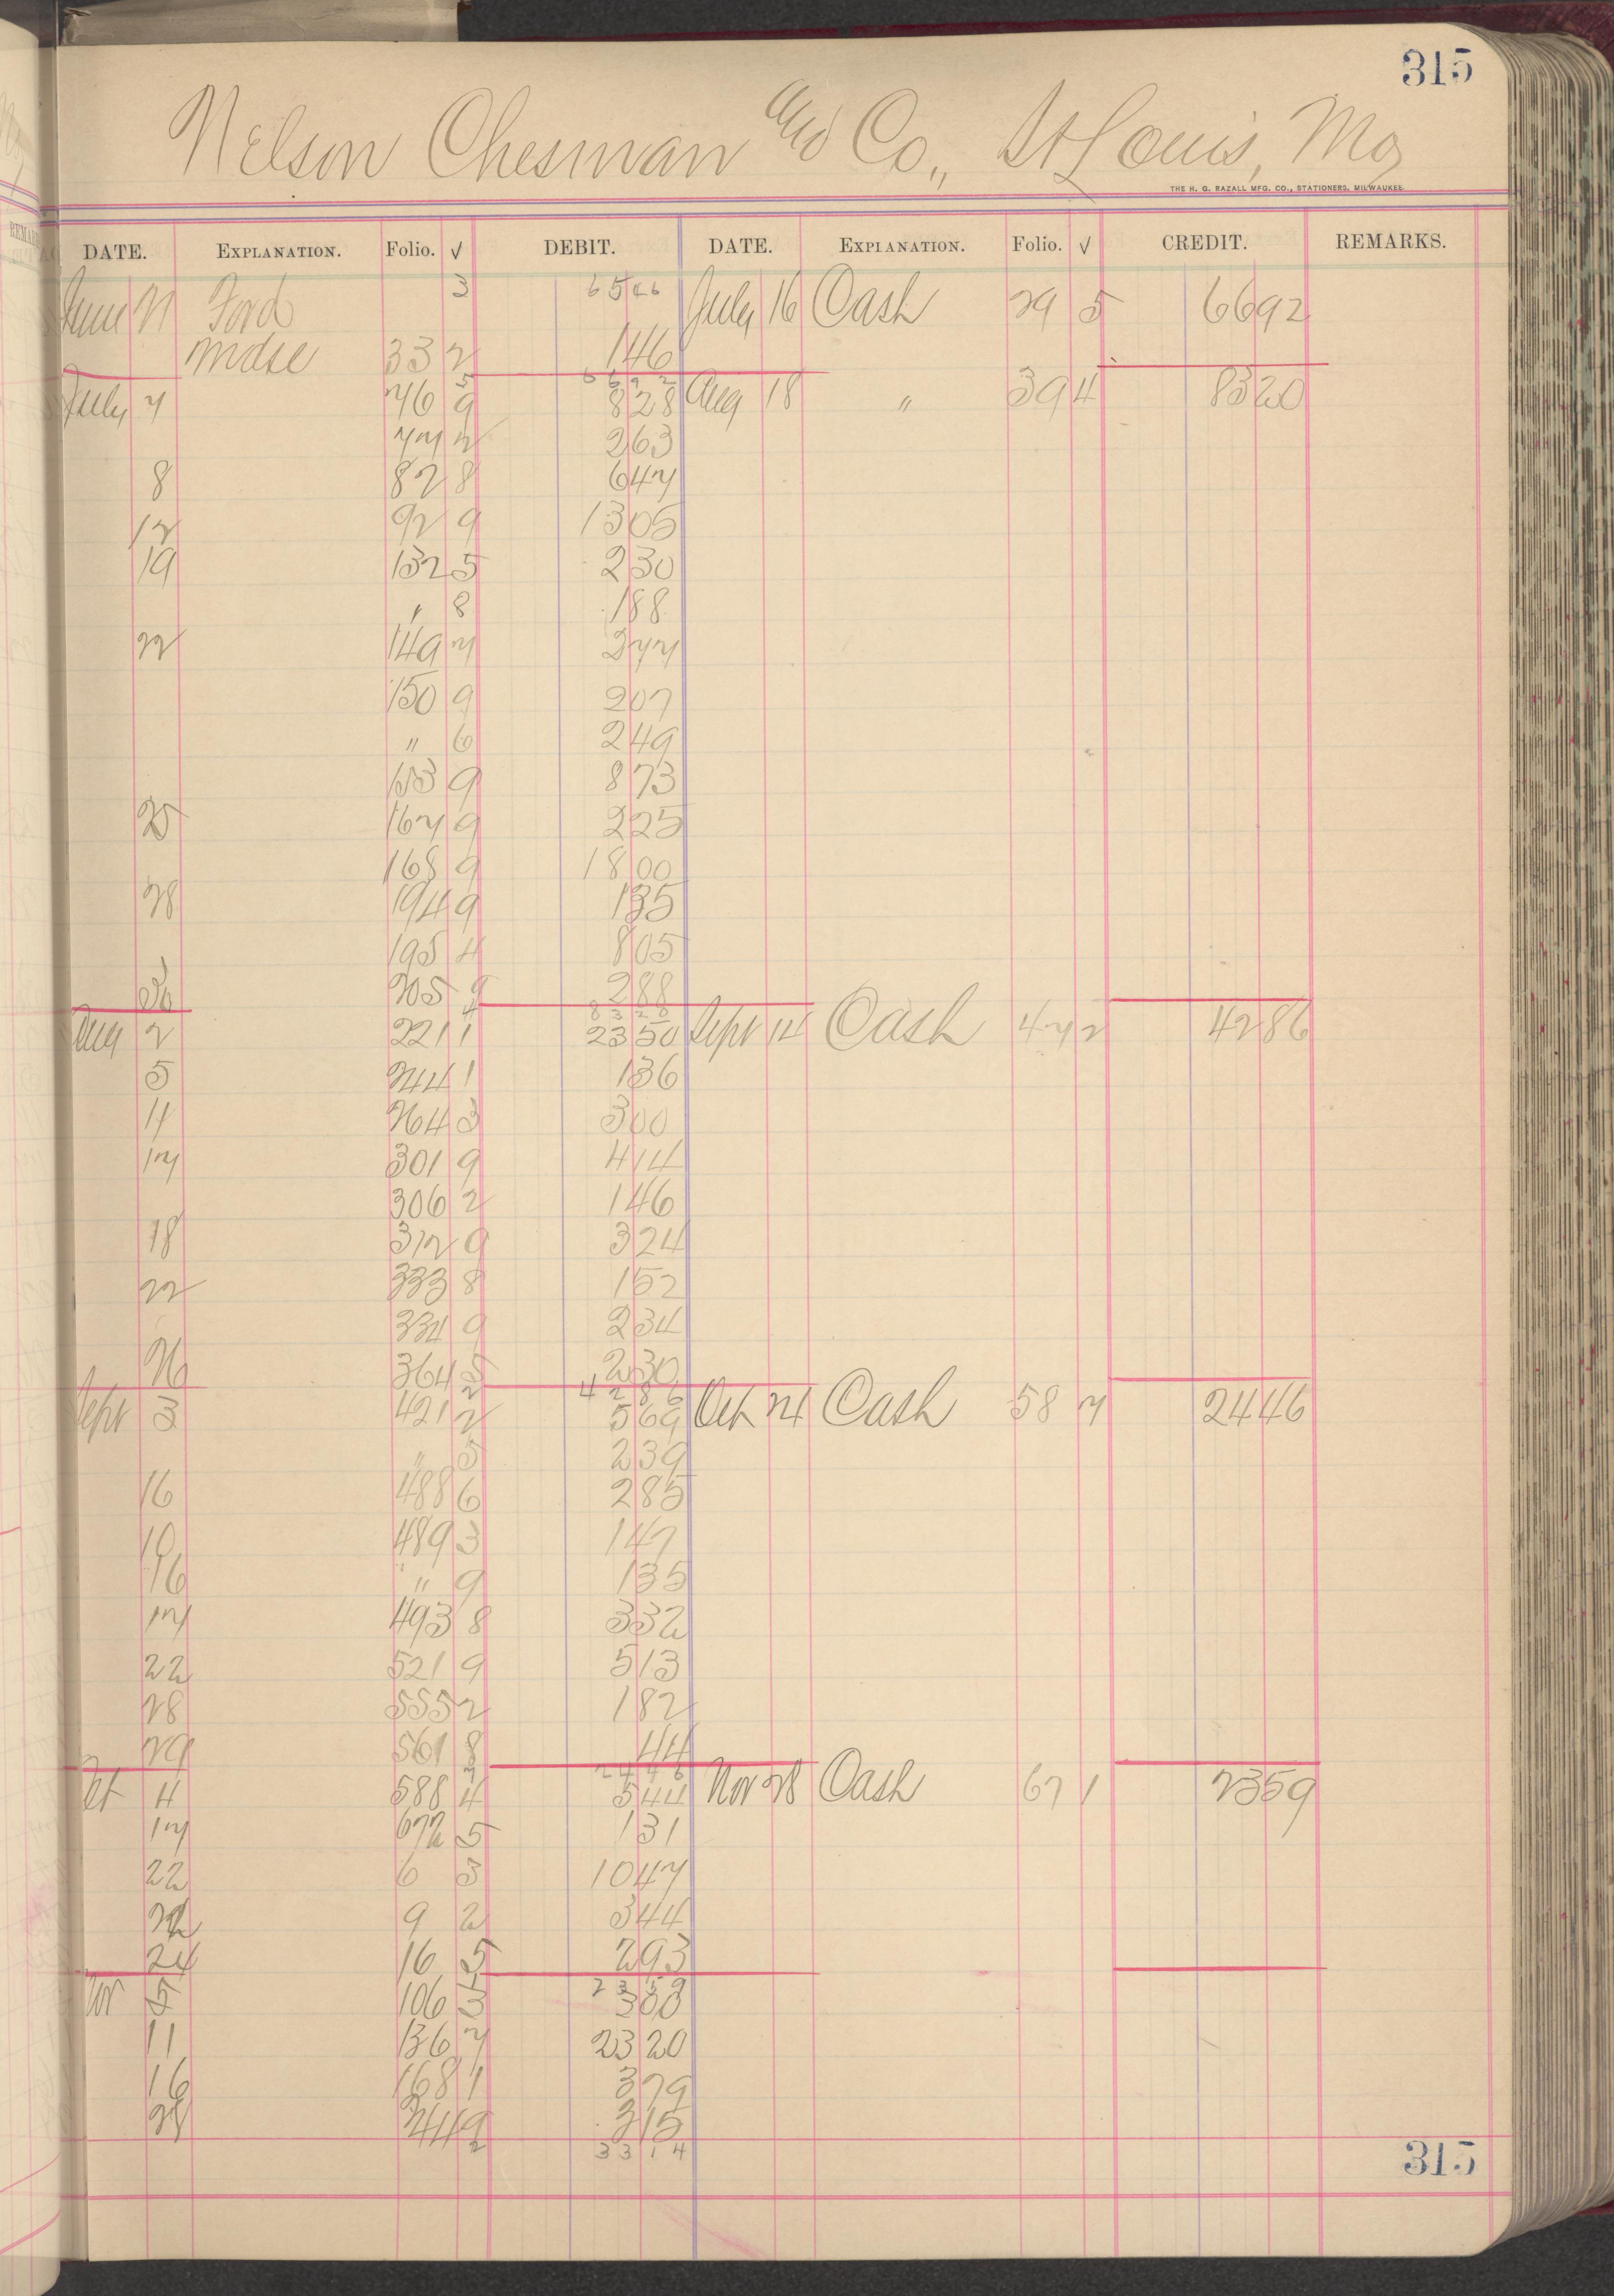 315
Nelson Chesman and Co., St Louis, Mo
THE H. G. RAZALL MFG. CO., STATIONERS, MILWAUKEE.
DATE. EXPLANATION. Folio. √ DEBIT. DATE. EXPLANATION. Folio. √ CREDIT. REMARKS.
June 21 Ford 3 6546 July 16 Cash 29 5 6692
Mdse 33 2 146
6692
July 7 76 9 828 Aug 18 " 39 4 8320
77 2 263
8 82 8 647
12 92 9 1305
19 132 5 230
" 8 188
22 149 7 277
150 9 207
" 6 249
153 9 873
25 167 9 225
168 9 1800
28 194 9 135
195 4 805
205 9 288
8320
Aug 2 221 1 2350 Sept 14 Cash 47 2 4286
5 244 1 136
11 264 3 300
17 301 9 414
306 2 146
18 312 9 324
22 333 8 152
334 9 234
26 364 5 230
4286
Sept 3 421 2 569 Oct 24 Cash 58 7 2446
" 5 239
16 488 6 285
10 489 3 147
16 " 9 135
17 493 8 332
22 521 9 513
28 555 2 182
29 561 8 44
2446
Oct 4 588 4 544 Nov 28 Cash 67 1 2359
17 672 5 131
22 6 3 1047
9 2 344
24 16 5 293
2359
Nov 5 106 3 300
11 136 7 2320
16 168 1 379
28 244 9 315
3314
315